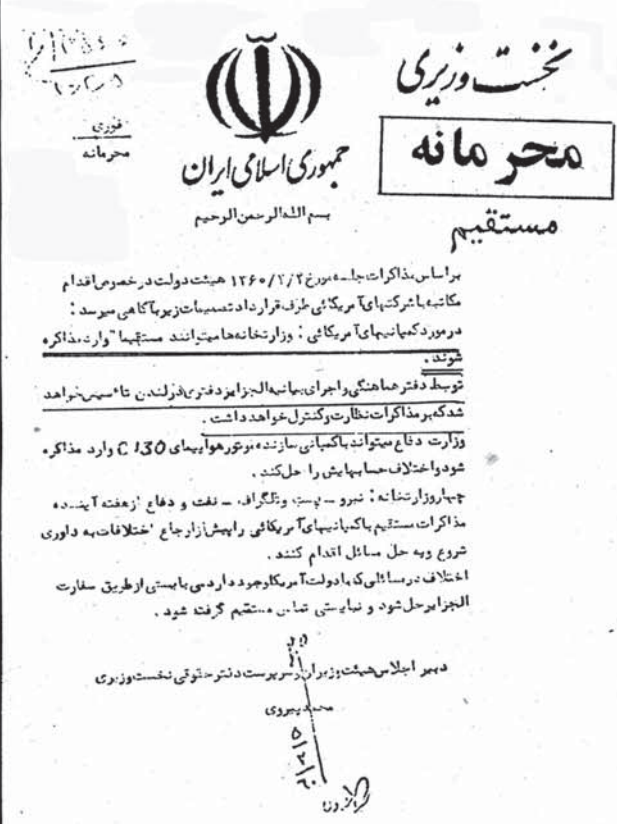 نخست وزیری
محرمانه
مستقیم
فوری
محرمانه
جمهوری اسلامی ایران
بسم الله الرحمن الرحیم
براساس مذاکرات جلسه مورخ ۱۳۶۰/۲/۲ هیئت دولت درخصوص اقدام
مکاتبه با شرکتهای آمریکائی طرف قرارداد تصمیمات زیر بآگاهی میرسد :
درمورد کمپانیهای آمریکائی : وزارتخانه ها میتوانند مستقیما" وارد مذاکره
شوند .
توسط دفتر هماهنگی و اجرای بیانیه الجزایر دفتری در لندن تاسیس خواهد
شد که بر مذاکرات نظارت و کنترل خواهد داشت .
وزارت دفاع میتواند با کمپانی سازنده موتور هواپیمای C 130 وارد مذاکره
شود و اختلاف حسابهایش را حل کند .
چهار وزارتخانه : نیرو ـ پست وتلگراف ـ نفت و دفاع ازهفته آینده
مذاکرات مستقیم با کمپانیهای آمریکائی را پیش از ارجاع اختلافات به داوری
شروع و به حل مسائل اقدام کنند .
اختلاف در مسائلی که با دولت آمریکا وجود دارد می بایستی از طریق سفارت
الجزایر حل شود و نبایستی تماس مستقیم گرفته شود .
دبیر اجلاس هیئت وزیران و سرپرست دفتر حقوقی نخست وزیری
محمد پیروی